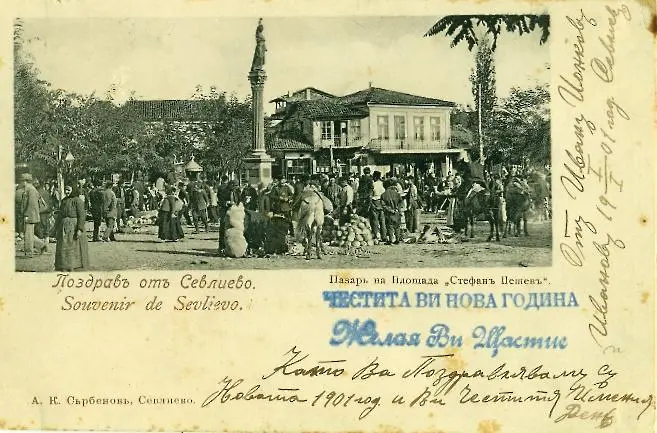 Поздравъ отъ Севлиево.
Souvenir de Sevlievo.
Пазаръ на Площада „Стефанъ Пешевъ“.
ЧЕСТИТА ВИ НОВА ГОДИНА
Желая Ви Щастие
Като Ва Поздравявамъ съ
Новата 1901 год и Ви Честитя Именния
День
А. К. Сърбеновъ, Севлиево.
Отъ Иванъ Ионковъ
Иванову 19 I/I 01 год Севлиево